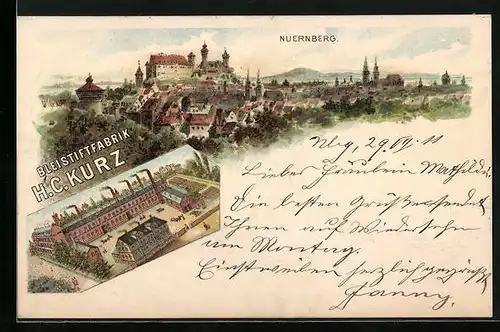 NUERNBERG.
BLEISTIFTFABRIK
H.C. KURZ
Nbg, 29
Liebes Fräulein Mathilde
Die besten Grüße sendet
Ihnen auf Wiedersehn
am Montag.
Einstweilen herzlich gegrüßt
Fanny.